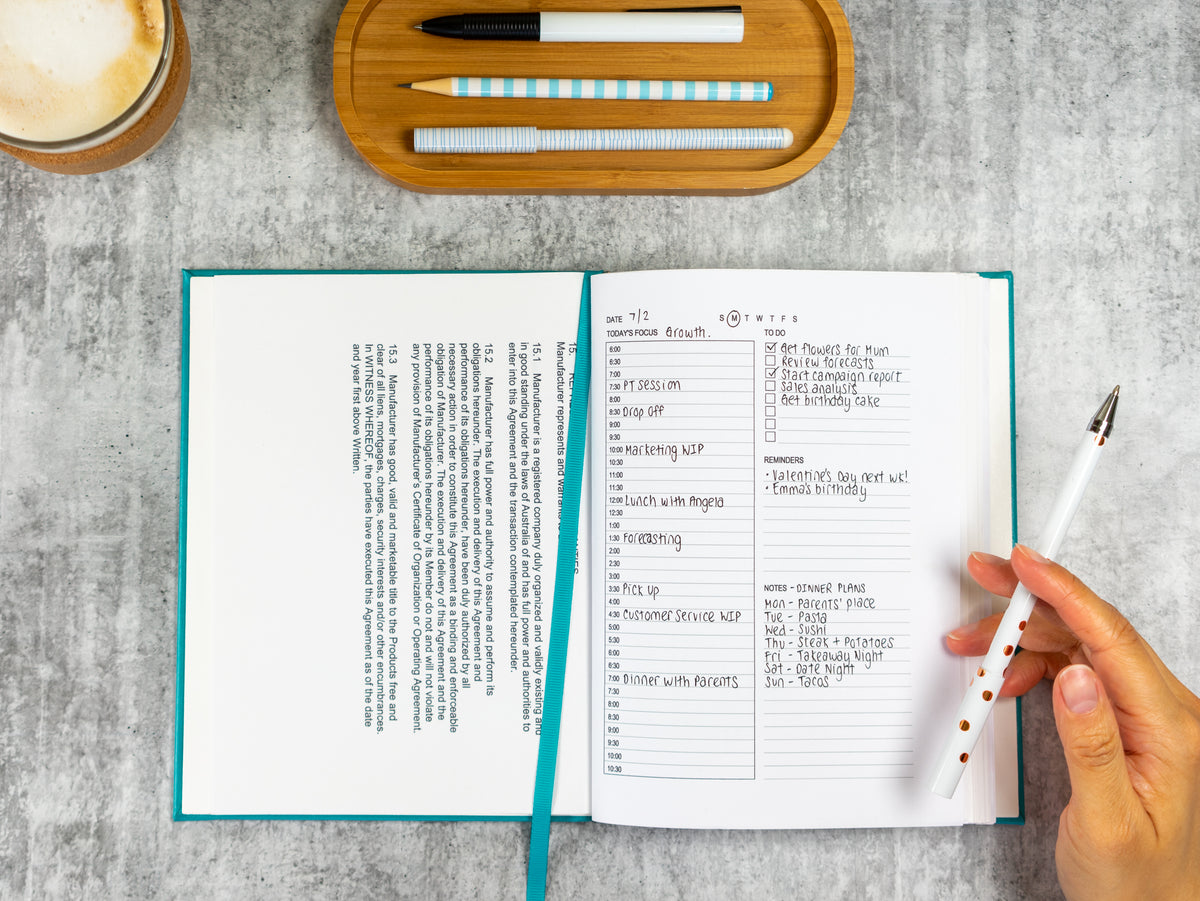 15.
Manufacturer represents and
15.1 Manufacturer is a registered company duly organized and validly existing and
in good standing under the laws of Australia of and has full power and authorities to
enter into this Agreement and the transaction contemplated hereunder.
15.2 Manufacturer has full power and authority to assume and perform its
obligations hereunder. The execution and delivery of this Agreement and
performance of its obligations hereunder, have been duly authorized by all
necessary action in order to constitute this Agreement as a binding and enforceable
obligation of Manufacturer. The execution and delivery of this Agreement and the
performance of its obligations hereunder by its Member do not and will not violate
any provision of Manufacturer's Certificate of Organization or Operating Agreement.
15.3 Manufacturer has good, valid and marketable title to the Products free and
clear of all liens, mortgages, charges, security interests and/or other encumbrances.
In WITNESS WHEREOF, the parties have executed this Agreement as of the date
and year first above Written.
DATE 7/2 S M T W T F S
TODAY'S FOCUS Growth.
6:00
6:30
7:00
7:30 PT Session
8:00
8:30 Drop Off
9:00
9:30
10:00 Marketing WIP
10:30
11:00
11:30
12:00 Lunch with Angela
12:30
1:00
1:30 Forecasting
2:00
2:30
3:00
3:30 Pick Up
4:00
4:30 Customer Service WIP
5:00
5:30
6:00
6:30
7:00 Dinner with Parents
7:30
8:00
8:30
9:00
9:30
10:00
10:30
TO DO
Get flowers for Mum
Review forecasts
Start campaign report
Sales analysis
Get birthday cake
REMINDERS
• Valentine's Day next wk!
• Emma's birthday
NOTES - DINNER PLANS
Mon - Parents' place
Tue - Pasta
Wed - Sushi
Thu - Steak + Potatoes
Fri - Takeaway Night
Sat - Date Night
Sun - Tacos